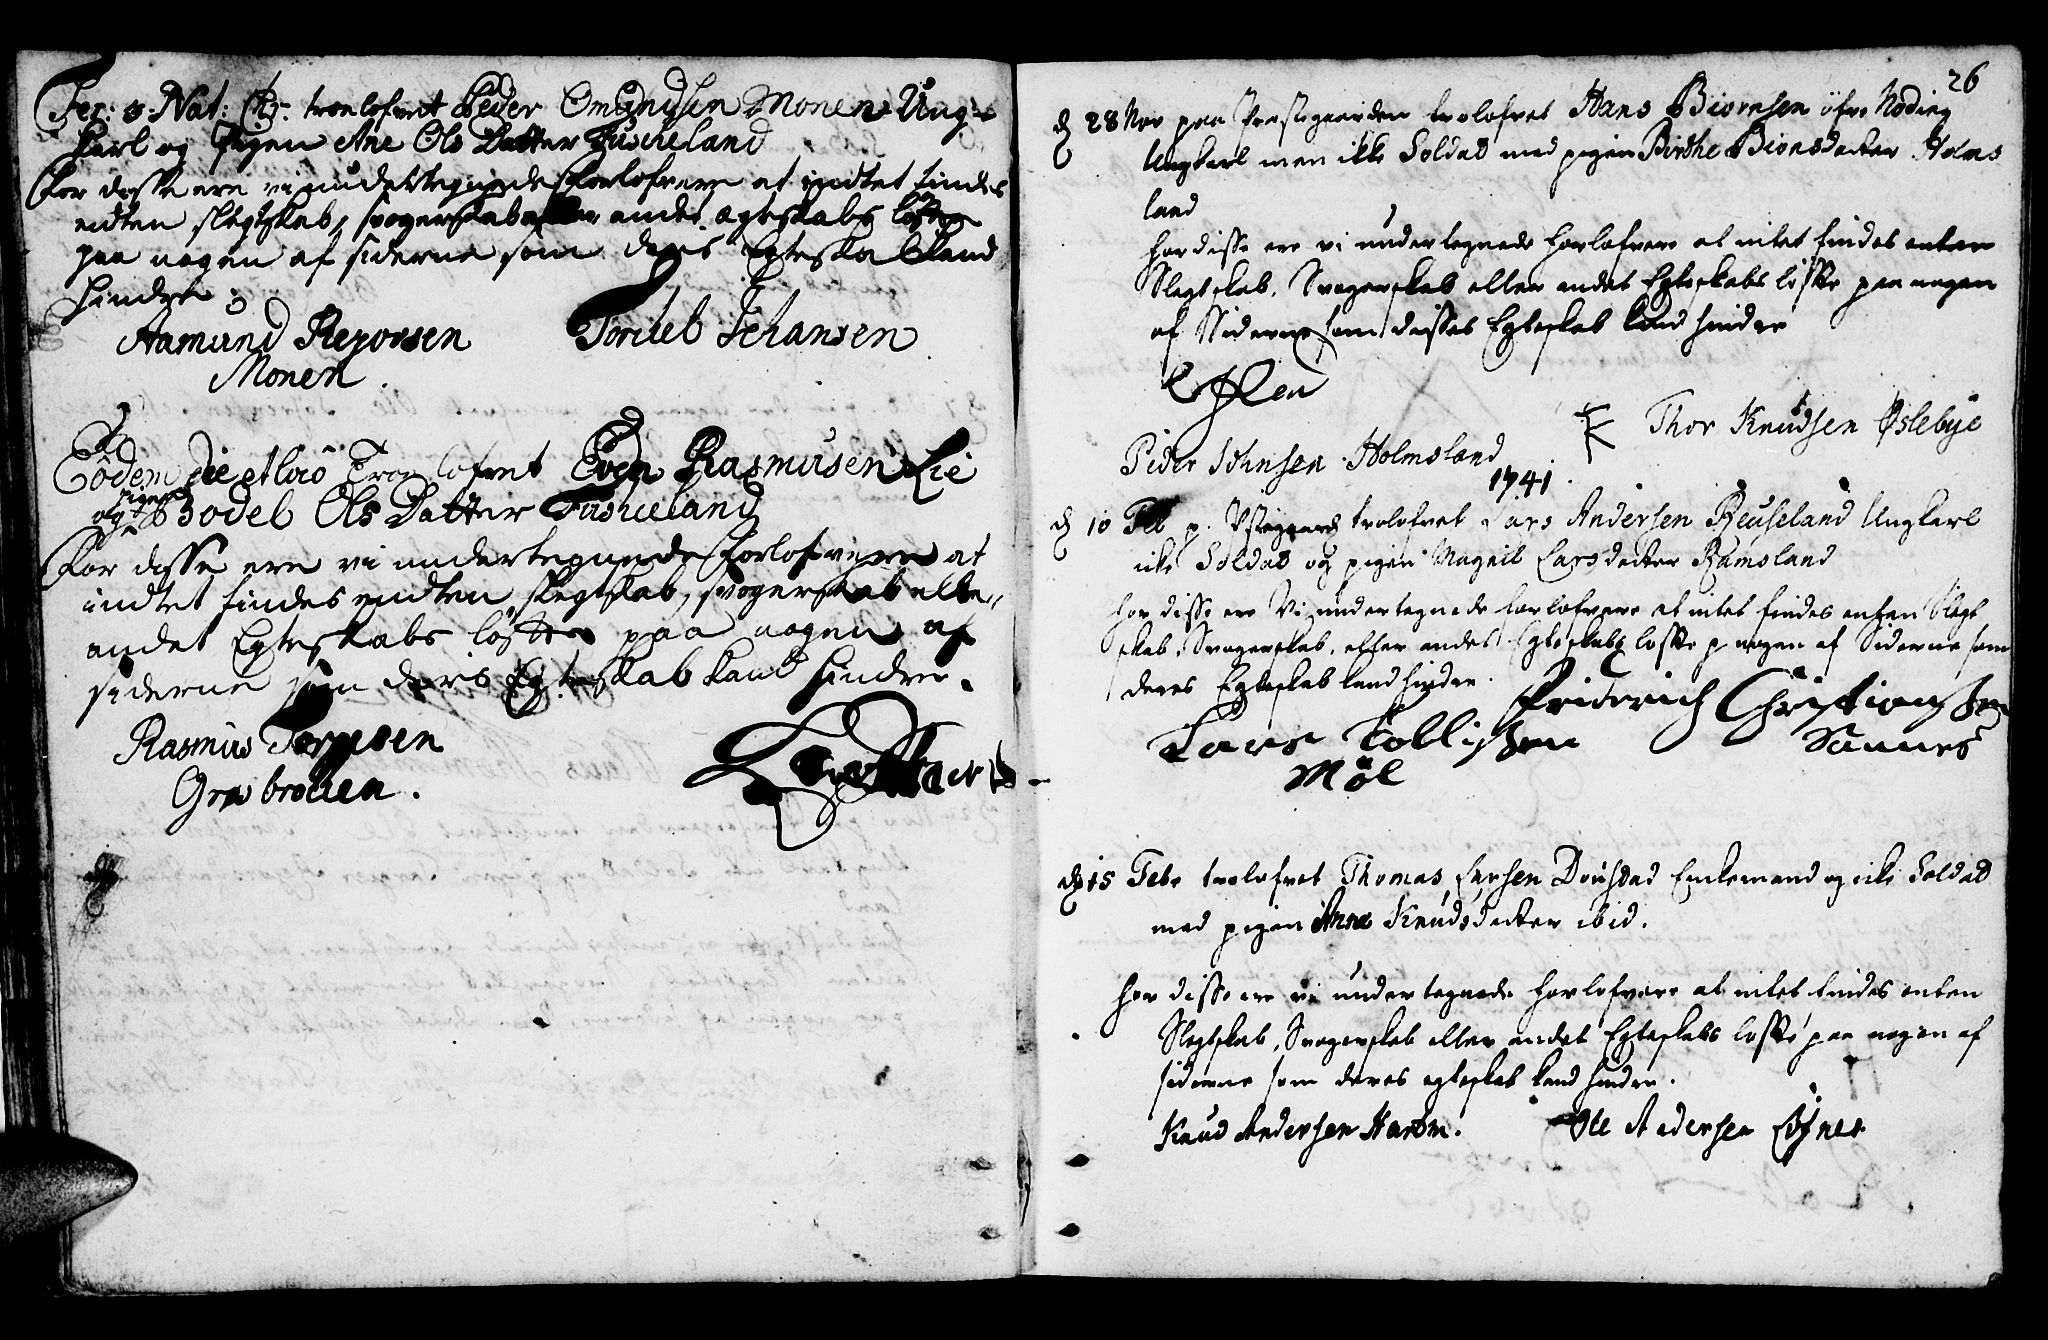 Fer: 3. Nat: Chr. troelofvet Peder Omundsen Monen Ung-
karl og Pigen Ane Ols Datter Tuscheland
For disse ere vi undertegnede Forlofvere at indtet findes
endten slegtskab, svogerskab eller andet Egteskabs løfte
paa nogen af siderne som deris Egteskab kand
hindre.
Aamund Reyorsen Toridleb Jehansen
Monen.
Eodem die et loco Troelofvet Even Rasmusen Lie
og pigen Bodel Ols Datter Tuscheland
For disse ere vi undertegnede Forlofvere at
indtet findes endten slegtskab, svogerskab elle-
andet Egteskabs løfte paa nogen af
siderne som deris Egteskab kand hindre.
Rasmus Torjusen
Grasbrochen.
26
d 28 Nov paa Prestegaarden trolofvet Hans Biørnsen øfre Noding
Ungkarl men ikke Soldat med pigen Birthe Biønsdatter Holms
land
for disse ere vi undertegnede forlofvere at intet findes enten
Slegtskab, Svogerskab eller andet Egteskabs løfte paa nogen
af Siderne som disses Egteskab kand hindre
Thor Knudsen Øslebye
Peder Johnsen Holmsland
1741.
d 10 Feb p. Pstegaard trolofvet Lars Andersen Reuseland Ungkarl
icke Soldat og pigen Magnil Larsdatter Ramsland
for disse ere Vi undertegnede forlofvere at intet findes enten Slegt
skab, Svogerskab, eller andet Egteskabs løfte p nogen af Siderne som
deres Egteskab kand hindre.
Fridrich Christiansen
Lars Tollisen Sannes
Møl
d 15 Febr trolofvet Thomas Larsen Doustad Enkemand og icke Soldat
med pigen Anna Knudsdatter ibid.
for disse ere vi undertegnede forlofvere at intet findes enten
Slegtskab, Svogerskab eller andet Egteskabs løfte paa nogen af
siderne som deres egteskab kand hindre.
Knud Andersen Harom. Ole Andersen Løfnes